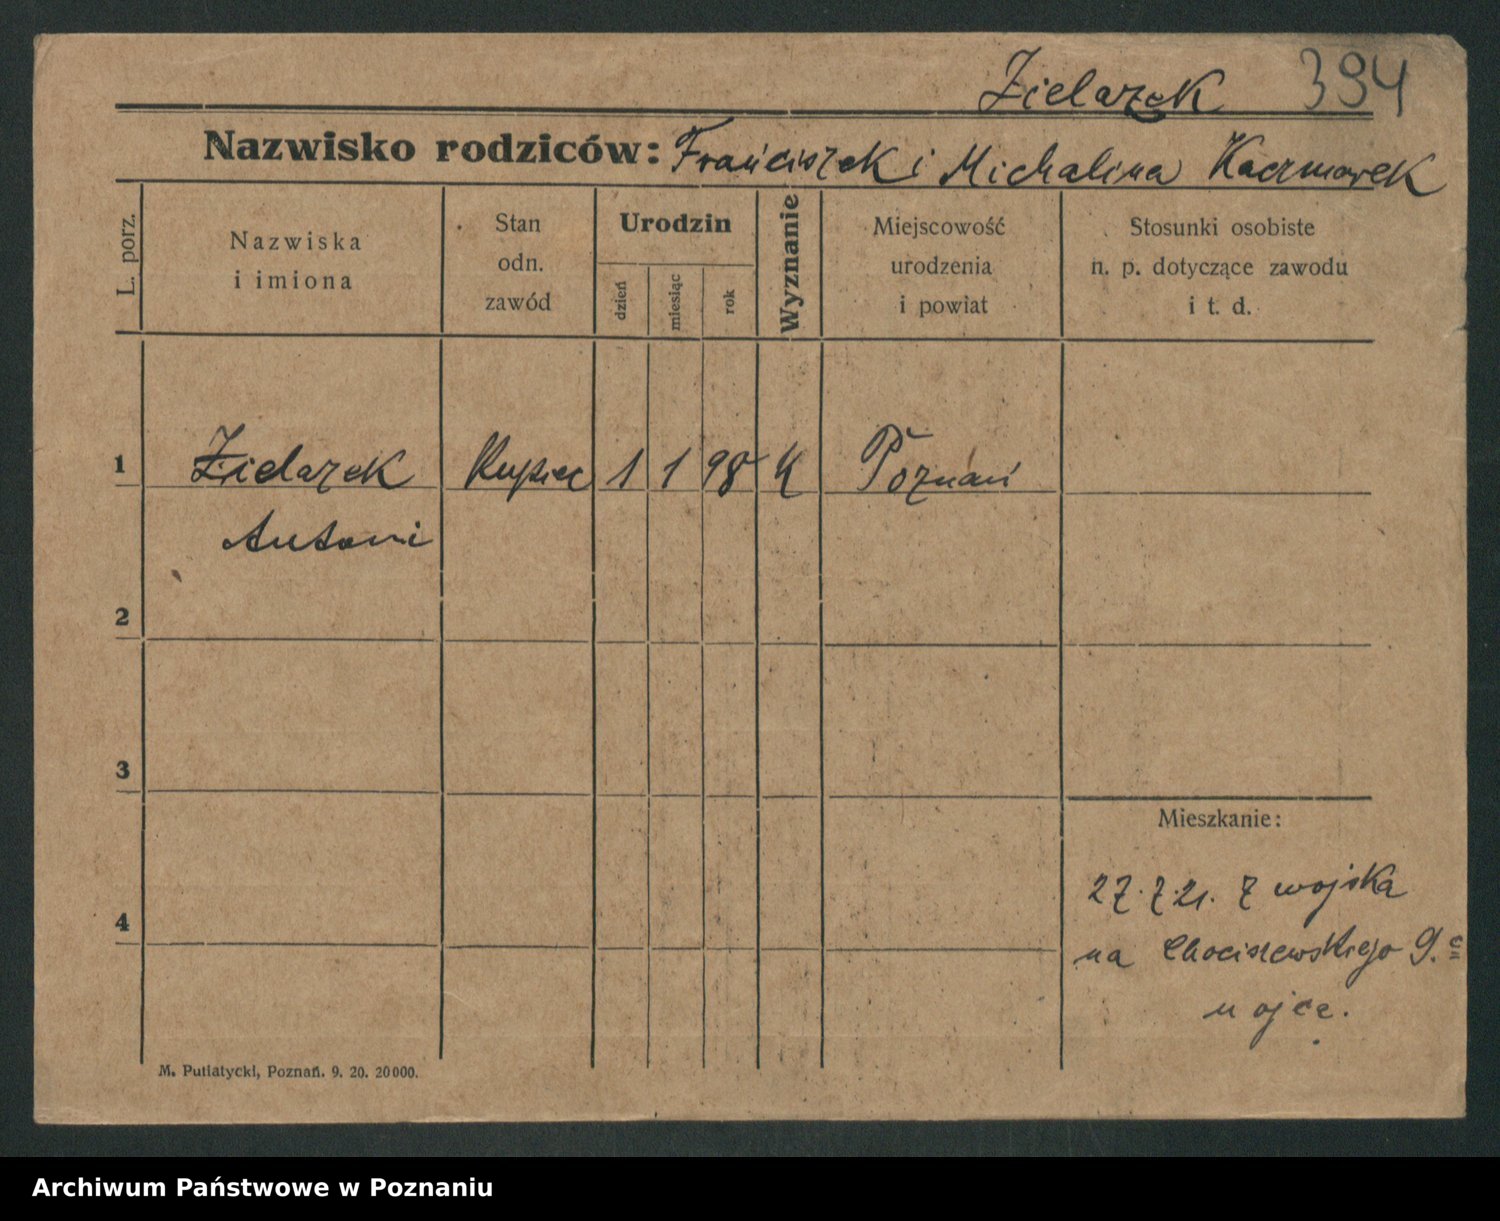 Zielazek 394
Nazwisko rodziców: Franciszek i Michalina Kaczmarek
L. porz.
Nazwiska
i imiona
Stan
odn.
zawód
Urodzin
dzień
miesiąc
rok
Wyznanie
Miejscowość
urodzenia
i powiat
Stosunki osobiste
n. p. dotyczące zawodu
i t. d.
1 Zielazek Kupiec 1 1 98 K Poznań
Antoni
2
3
Mieszkanie:
27.7.21. z wojska
4
na Chociszewskiego 9.c
u ojca.
M. Putiatycki, Poznań. 9. 20. 20000.
Archiwum Państwowe w Poznaniu